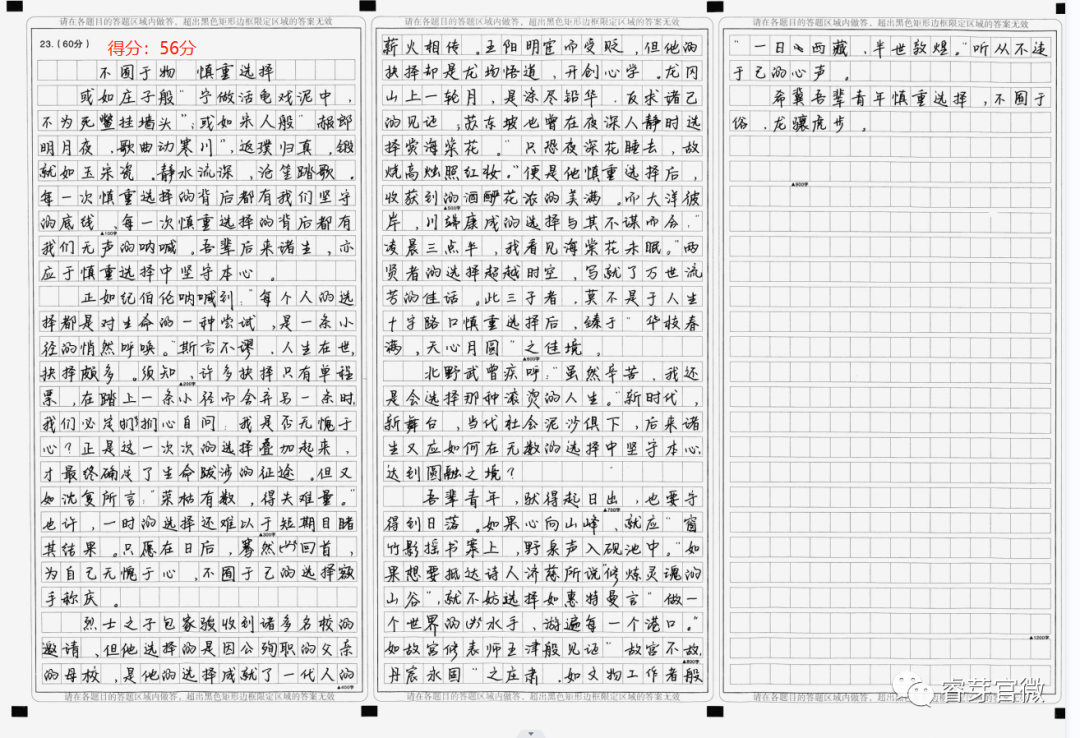 请在各题目的答题区域内做答，超出黑色矩形边框限定区域的答案无效
23.（60分）
得分：56分
不囿于物 慎重选择
或如庄子般“宁做活龟戏泥中，
不为死鳖挂墙头”；或如朱人般“报郎
明月夜，歌曲动寒川”，返璞归真。锻
就如玉朱瓷。静水流深，沧笙踏歌。
每一次慎重选择的背后都有我们坚守
的底线，每一次慎重选择的背后都有
▲100字
我们无声的呐喊。吾辈后来诸生，亦
应于慎重选择中坚守本心。
正如纪伯伦呐喊到：“每个人的选
择都是对生命的一种尝试，是一条小
径的悄然呼唤。”斯言不谬，人生在世，
抉择颇多。须知，许多抉择只有单程
▲200字
票，在踏上一条小径而舍弃另一条时，
我们必定扪心自问：我是否无愧于
心？正是这一次次的选择叠加起来，
才最终确定了生命跋涉的征途。但又
如沈复所言：“荣枯有数，得失难量。”
也许，一时的选择还难以于短期目睹
▲300字
其结果。只愿在日后，蓦然回首，
为自己无愧于心，不囿于己的选择额
手称庆。
烈士之子包家骏收到诸多名校的
邀请，但他选择的是因公殉职的父亲
的母校，是他的选择成就了一代人的
▲400字
请在各题目的答题区域内做答，超出黑色矩形边框限定区域的答案无效
请在各题目的答题区域内做答，超出黑色矩形边框限定区域的答案无效
薪火相传。王阳明宦而受贬，但他的
抉择却是龙场悟道，开创心学。龙冈
山上一轮月，是涤尽铅华，反求诸己
的见证；苏东坡也曾在夜深人静时选
择赏海棠花。“只恐夜深花睡去，故
烧高烛照红妆。”便是他慎重选择后，
收获到的酒酽花浓的美满。而大洋彼
▲500字
岸，川端康成的选择与其不谋而合，“
凌晨三点半，我看见海棠花未眠。”两
贤者的选择超越时空，写就了万世流
芳的佳话。此三子者，莫不是于人生
十字路口慎重选择后，臻于“华枝春
满，天心月圆”之佳境。
▲600字
北野武曾疾呼：“虽然辛苦，我还
是会选择那种滚烫的人生。”新时代，
新舞台，当代社会泥沙俱下，后来诸
生又应如何在无数的选择中坚守本心
达到圆融之境？
吾辈青年，驮得起日出，也要守
▲700字
得到日落。如果心向山峰，就应“窗
竹影摇书案上，野泉声入砚池中。”如
果想要抵达诗人济慈所说“修炼灵魂的
山谷”，就不妨选择如惠特曼言“做一
个世界的水手，游遍每一个港口。”
如故宫修表师王津般见证“故宫不故，
▲800字
丹宸永固”之庄肃。如文物工作者般
请在各题目的答题区域内做答，超出黑色矩形边框限定区域的答案无效
请在各题目的答题区域内做答，超出黑色矩形边框限定区域的答案无效
“一日西藏，半世敦煌。”听从不违
于己的心声。
希冀吾辈青年慎重选择，不囿于
俗，龙骧虎步。
▲900字
▲1000字
请在各题目的答题区域内做答，超出黑色矩形边框限定区域的答案无效
睿芽官微